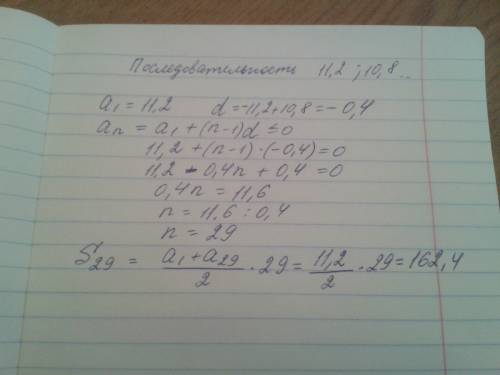 Последовательность 11,2 ; 10,8...
a₁ = 11,2 d = -11,2+10,8 = -0,4
aₙ = a₁ + (n-1)d ≤ 0
11,2 + (n-1)·(-0,4) = 0
11,2 - 0,4n + 0,4 = 0
0,4n = 11,6
n = 11,6 : 0,4
n = 29
S₂₉ = (a₁ + a₂₉)/2 · 29 = 11,2/2 · 29 = 162,4